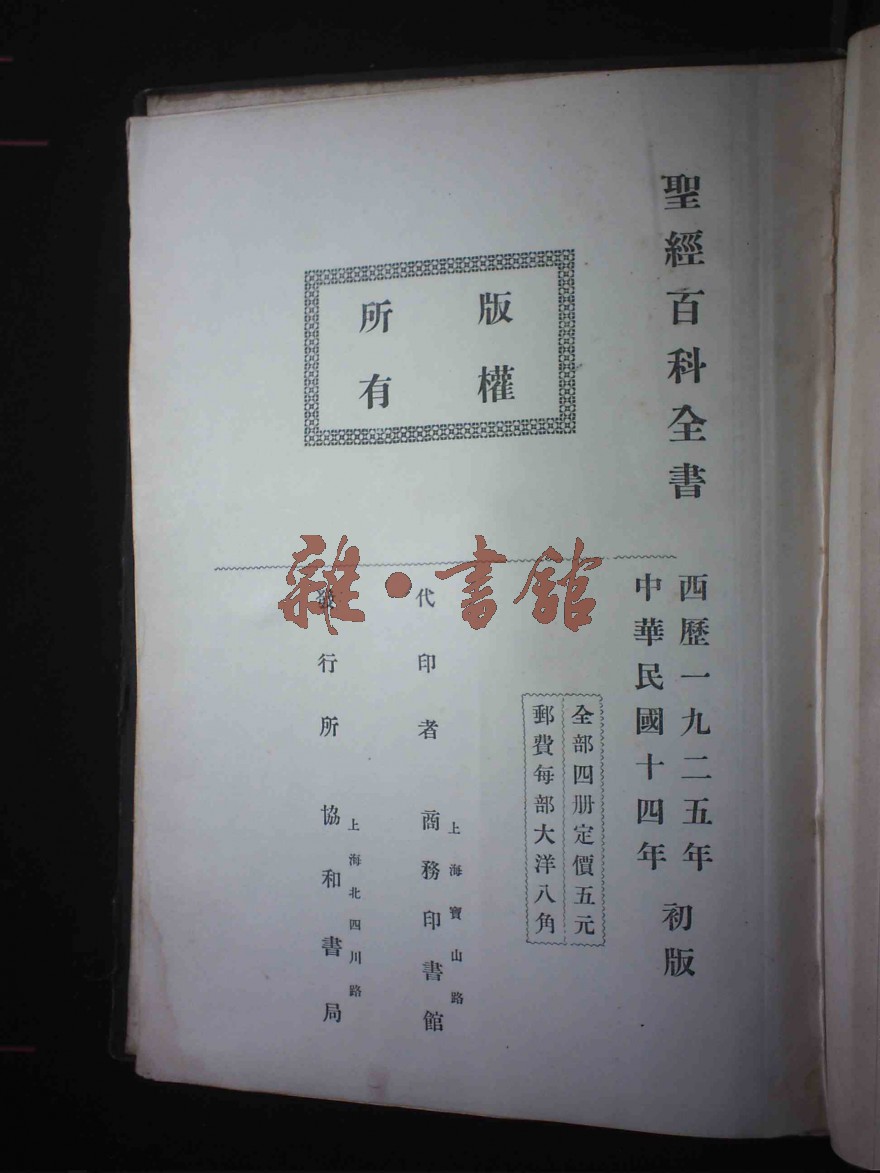 聖經百科全書
西歷一九二五年
中華民國十四年
初版
版權
所有
全部四册定價五元
郵費每部大洋八角
上海寶山路
代印者 商務印書館
上海北四川路
發行所 協和書局
雜·書館